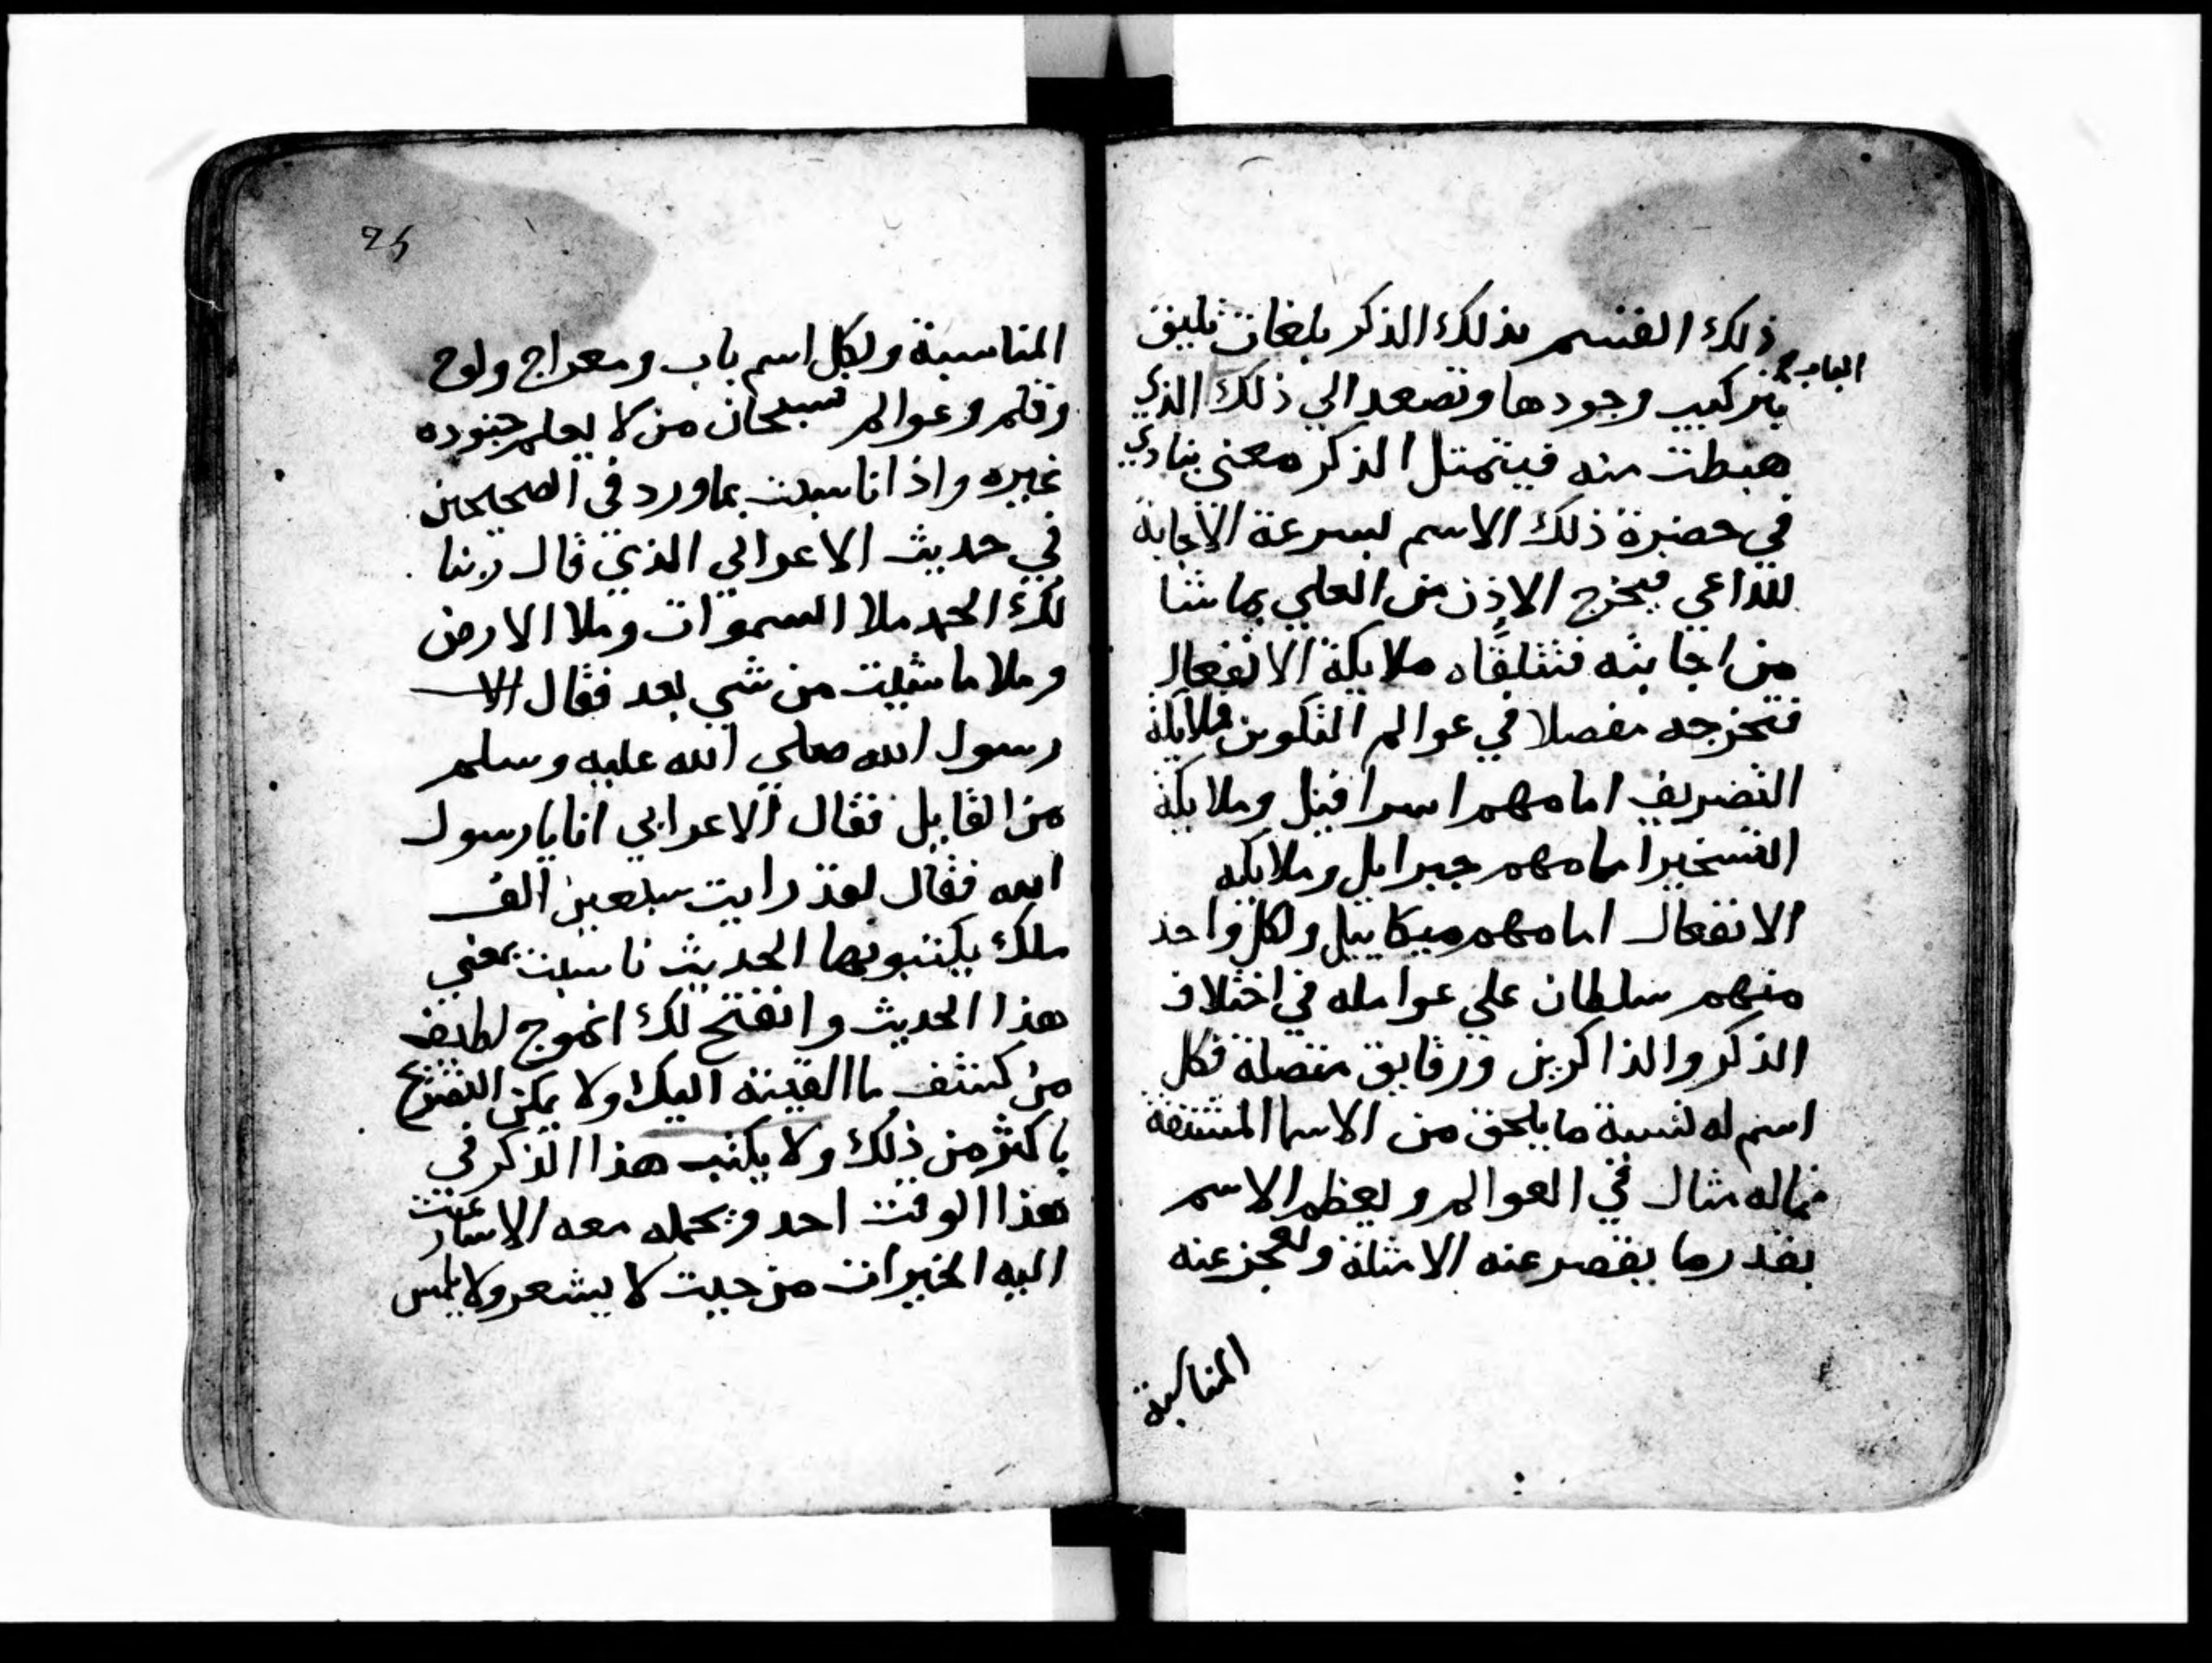 ذلك القسم بذلك الذكر بلغات تليق
بتركيب وجودها وتصعد الي ذلك الذي
هبطت منه فيتمثل الذكر معني ينادي
في حضرة ذلك الاسم لسرعة الاجابة
للداعي فيخرج الاذن من العلي بما شا
من اجابته فتتلقاه ملايكة الانفعال
فتخرجه مفصلا في عوالم التكوين فملايكة
التصريف امامهم اسرافيل وملايكة
التسخير امامهم جبرايل وملايكه
الانفعال امامهم ميكاييل ولكل واحد
منهم سلطان علي عوامله في اختلاف
الذكر والذاكرين ورقايق متصلة فكل
اسم له نسبة ما يلحق من الاسما المشتقة
فماله مثال في العوالم ويعظم الاسم
بقدر ما يقصر عنه الامثلة وتعجز عنه
المناسبة
25
المناسبة ولكل اسم باب ومعراج ولوح
وقلم وعوالم فسبحان من لا يعلم جنوده
غيره واذا ناسبت بما ورد في الصحيحين
في حديث الاعرابي الذي قال ربنا
لك الحمد ملا السموات وملا الارض
وملا ما شيت من شي بعد فقال
رسول الله صلي الله عليه وسلم
من القايل فقال الاعرابي انا يا رسول
الله فقال لقد رايت سبعين الف
ملك يكتبونها الحديث ناسبت بمعني
هذا الحديث وانفتح لك انموج لطايف
من كشف ما القيته اليك ولا يمكن التصريح
باكثر من ذلك ولا يكتب هذا الذكر في
هذا الوقت احد ويحمله معه الا
اليه الخيرات من حيث لا يشعر ولا